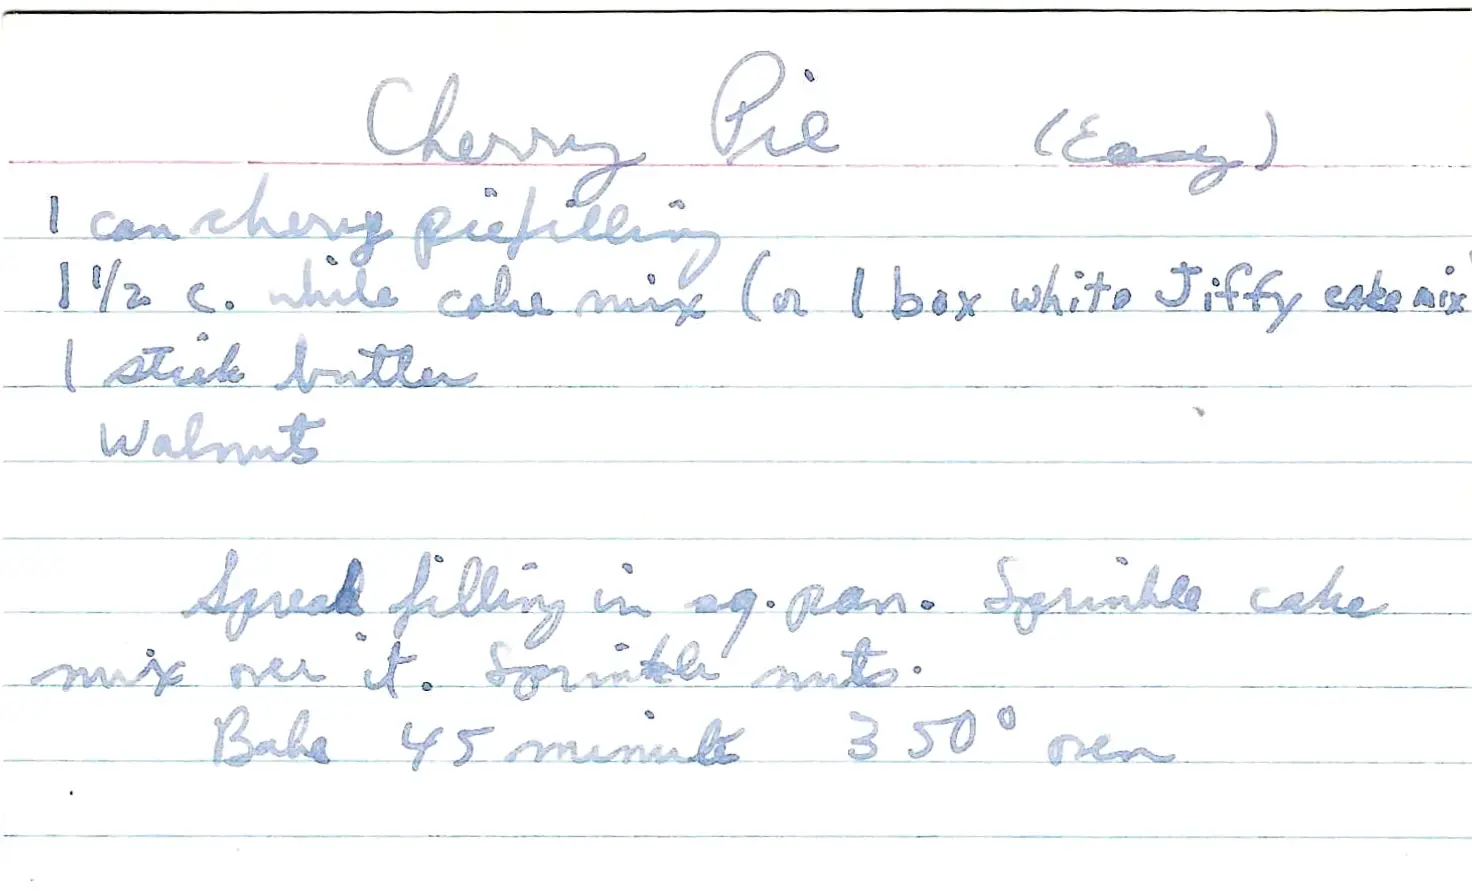 Cherry Pie (Easy)
1 can cherry pie filling
1 1/2 c. white cake mix (or 1 box white Jiffy cake mix)
1 stick butter
Walnuts
Spread filling in sq. pan. Sprinkle cake
mix over it. Sprinkle nuts.
Bake 45 minutes 350° oven